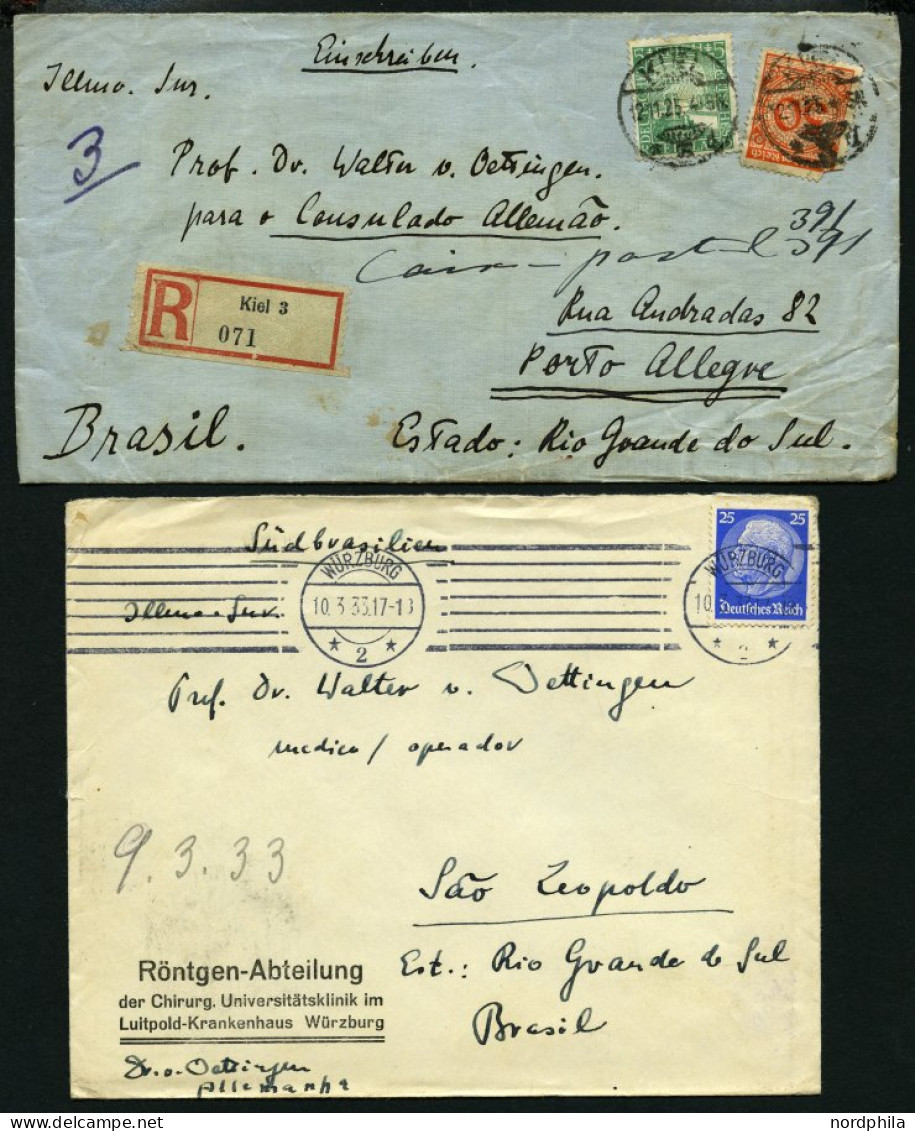 Einschreiben.
Illmo. Snr.
3
Prof. Dr. Walter v. Oettingen.
para o Consulado Allemão.
391
Caixa postal 391
R
Kiel 3
071
Rua Andradas 82
Porto Allegre
Brasil.
Estado: Rio Grande do Sul.
KIEL
Südbrasilien
25 25
Deutsches Reich
WÜRZBURG
10.3.33.17-18
* 2 *
WÜRZBURG
Illmo. Snr.
Prof. Dr. Walter v. Oettingen
medico / operador
9.3.33
São Leopoldo
Est.: Rio Grande do Sul
Brasil
Röntgen-Abteilung
der Chirurg. Universitätsklinik im
Luitpold-Krankenhaus Würzburg
Dr. v. Oettingen
Allemanha
nordphila